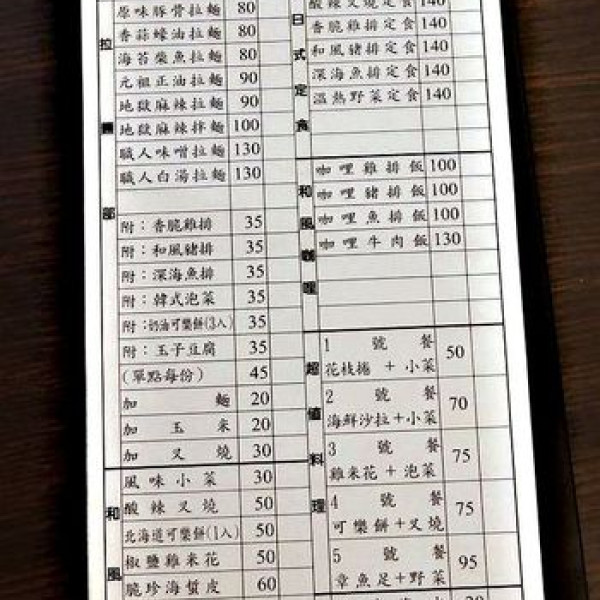 拉麵部
原味豚骨拉麵 80
香蒜蠔油拉麵 80
海苔柴魚拉麵 80
元祖正油拉麵 90
地獄麻辣拉麵 90
地獄麻辣拌麵 100
職人味噌拉麵 130
職人白湯拉麵 130
附：香脆雞排 35
附：和風豬排 35
附：深海魚排 35
附：韓式泡菜 35
附：奶油可樂餅(3入) 35
附：玉子豆腐 35
(單點每份) 45
加麵 20
加玉米 20
加叉燒 30
和風
風味小菜 30
酸辣叉燒 50
北海道可樂餅(1入) 50
椒鹽雞米花 50
脆珍海蜇皮 60
日式定食
酸辣叉燒定食 140
香脆雞排定食 140
和風豬排定食 140
深海魚排定食 140
溫熱野菜定食 140
和風咖哩
咖哩雞排飯 100
咖哩豬排飯 100
咖哩魚排飯 100
咖哩牛肉飯 130
超值料理
1號餐
花枝捲＋小菜 50
2號餐
海鮮沙拉＋小菜 70
3號餐
雞米花＋泡菜 75
4號餐
可樂餅＋叉燒 75
5號餐
章魚足＋野菜 95